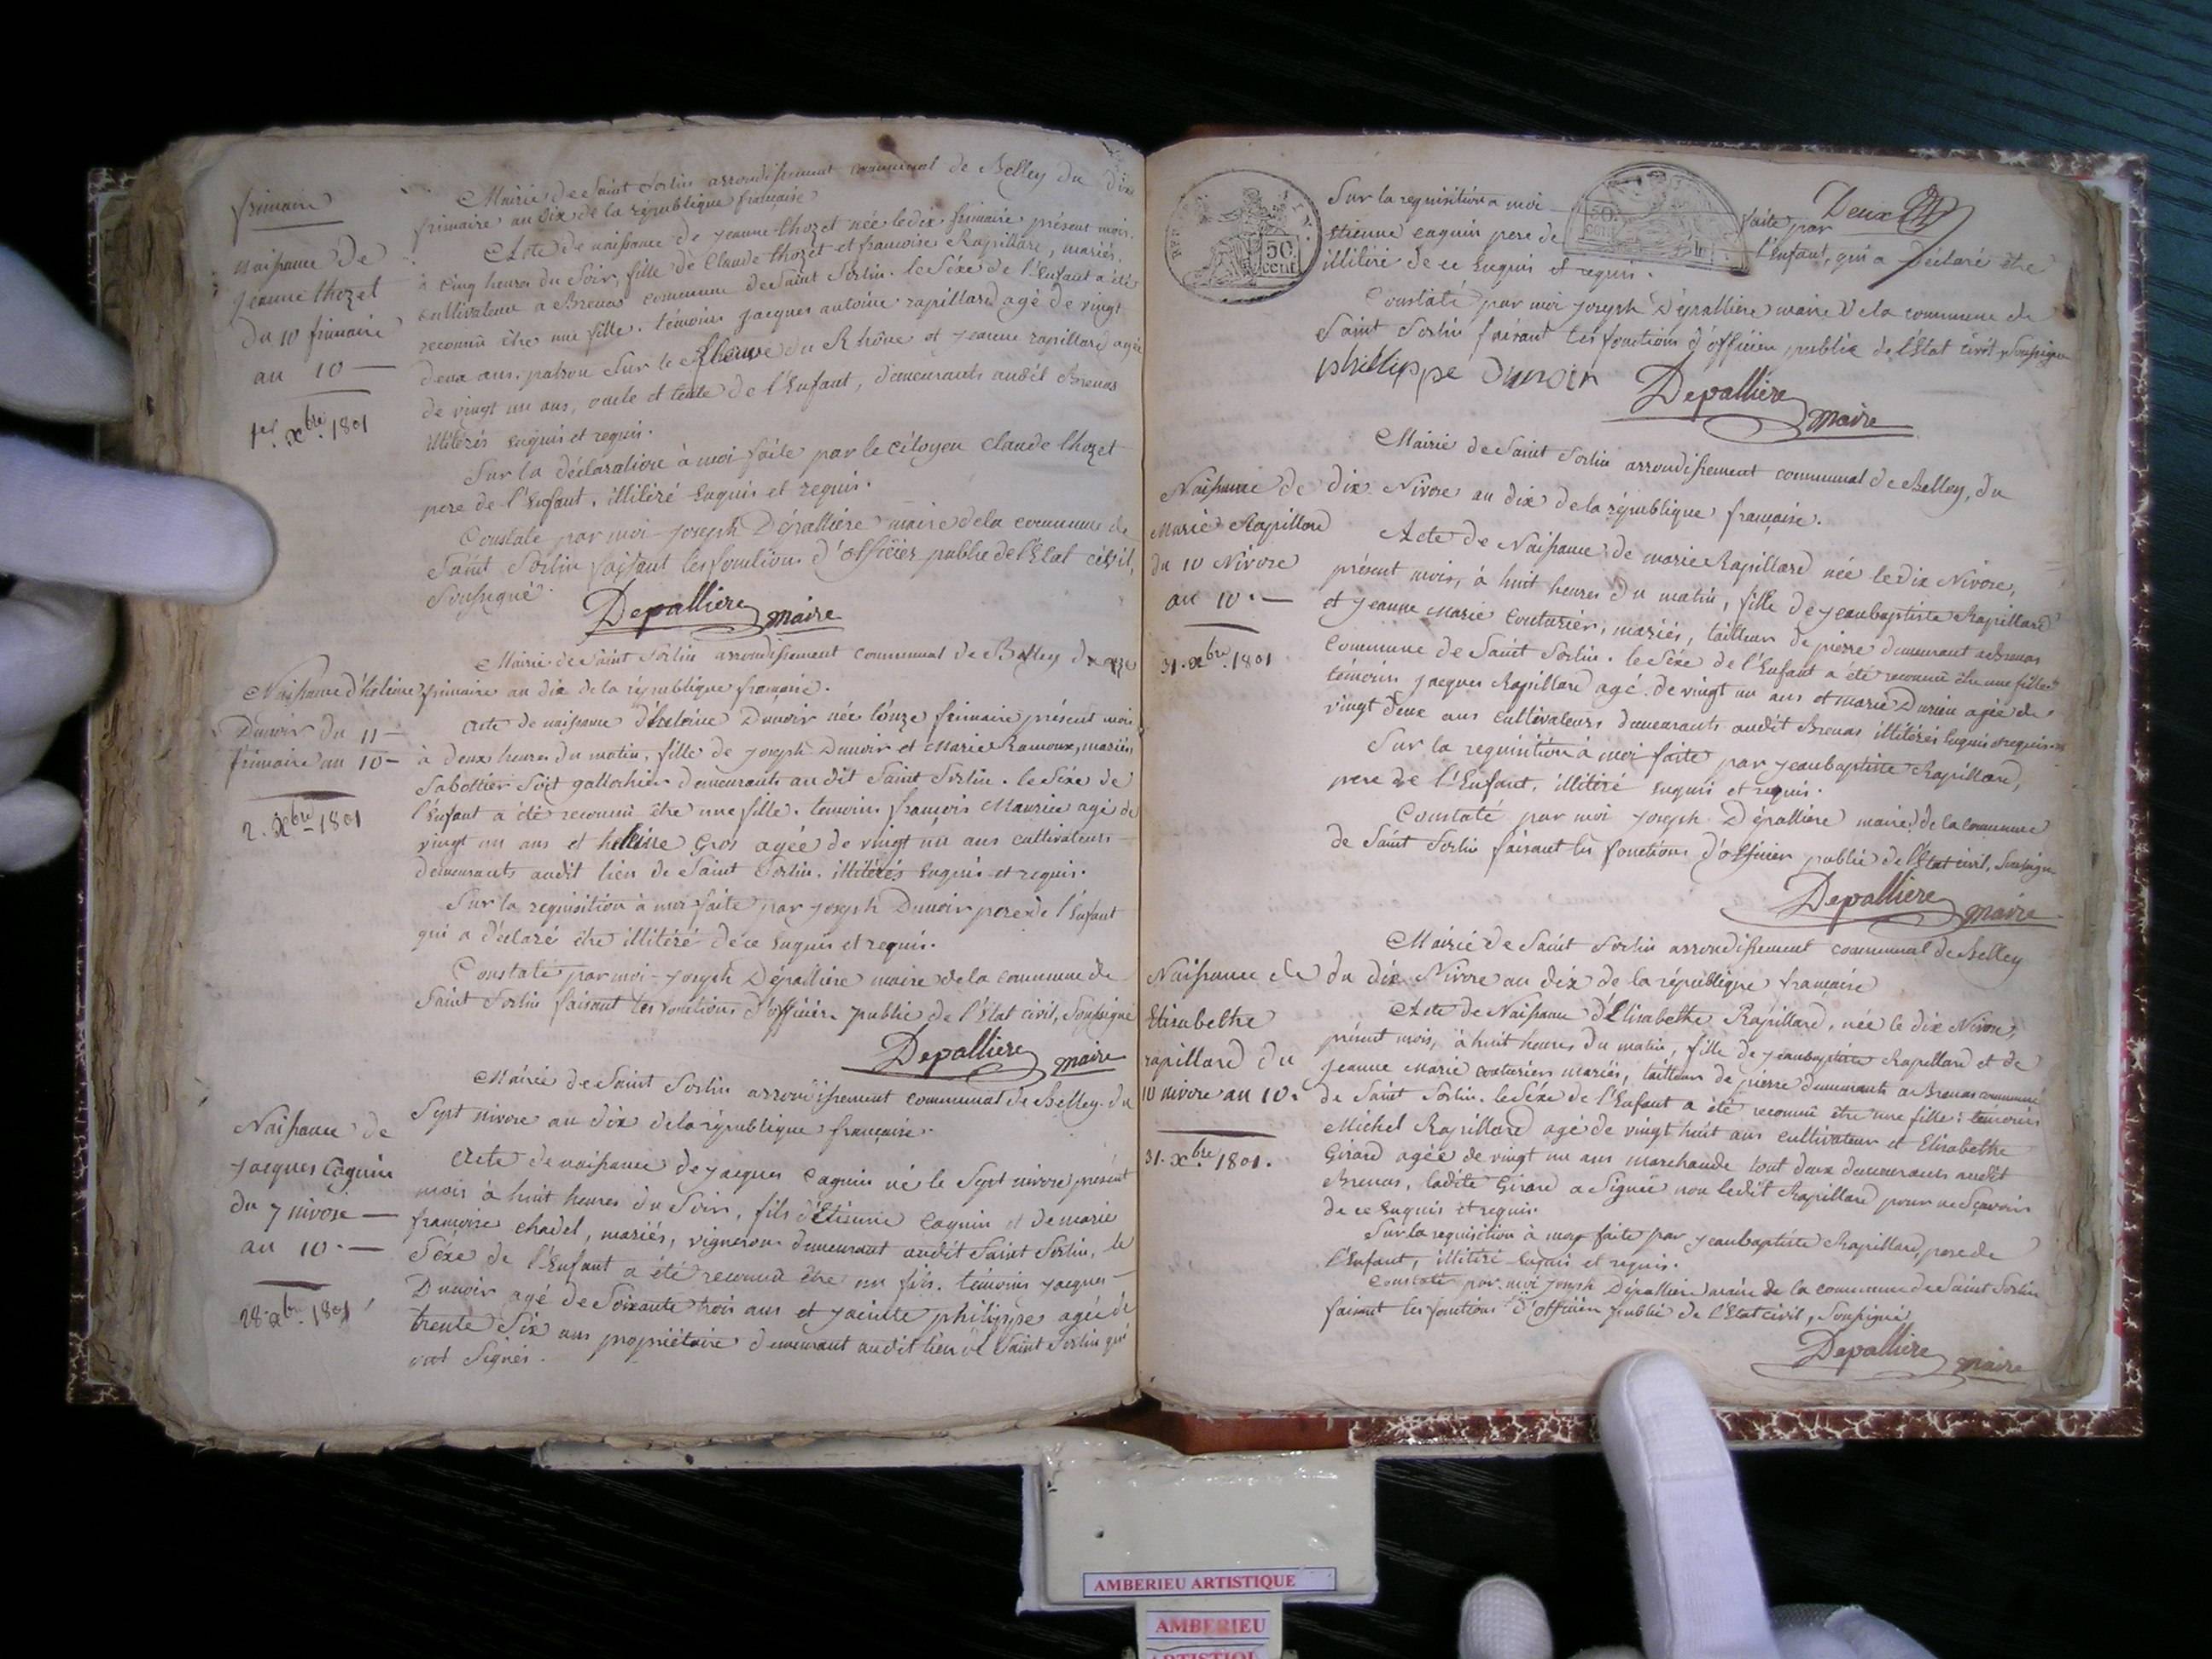 frimaire
Mairie de Saint Sorlin arrondissement communal de Belley du dix
frimaire an dix de la république française
naissance de
Jeanne thozet
du 10 frimaire
an 10 —
1er. xbre. 1801
Acte de naissance de jeanne thozet née le dix frimaire présent mois
à cinq heures du Soir, fille de Claude thozet et francoise Rapillard, mariés,
cultivateur a Brenas commune de Saint Sorlin. le Séxe de l'Enfant a été
reconnû être une fille. témoins jacques antoine rapillard agé de vingt
deux ans. patron Sur le fleuve du Rhône et jeanne rapillard agée
de vingt un ans, oncle et tente de l'Enfant, demeurants audit Brenas
illitérés Enquis et requis.
Sur la déclaration à moi faite par le citoyen Claude thozet
pere de l'Enfant. illitéré Enquis et requis.
Constaté par moi Joseph Dépallière maire de la commune de
Saint Sorlin faisant les fonctions d'officier public de l'Etat civil,
Soussigné.
Depalliere maire
Mairie de Saint Sorlin arrondissement communal de Belley du onze
frimaire an dix de la république française.
Naissance d'héleine
Dunoir du 11 —
frimaire an 10 —
2. Xbre 1801
Acte de naissance d'heleine Dunoir née l'onze frimaire présent mois
à deux heures du matin, fille de joseph Dunoir et Marie Ramoux, mariés,
Sabottier Soit gallochier demeurants audit Saint Sorlin. le Séxe de
l'Enfant a été reconnû être une fille. temoins françois Maurice agé de
vingt un ans et heleine Gros agée de vingt un ans cultivateurs
demeurants audit lieu de Saint Sorlin. illitérés Enquis et requis.
Sur la requisition à moi faite par joseph Dunoir pere de l'Enfant
qui a déclaré être illitéré de ce Enquis et requis.
Constaté par moi Joseph Dépallière maire de la commune de
Saint Sorlin faisant les fonctions d'officier public de l'Etat civil, Soussigné
Depalliere maire
Mairie de Saint Sorlin arrondissement communal de Belley du
Sept nivose an dix de la république française.
Naissance de
jacques Caguin
du 7 nivose —
an 10. —
28. xbre. 1801
Acte de naissance de jacques Caguin né le Sept nivose présent
mois à huit heures du Soir, fils d'Etienne Caguin et de marie
françoise chadel, mariés, vignerons demeurant audit Saint Sorlin, le
Séxe de l'Enfant a été reconnû être un fils. témoins jacques
Dunoir agé de Soixante trois ans et jacinte philippe agée de
trente Six ans propriétaire demeurant audit lieu de Saint Sorlin qui
ont Signés.
50
cent
Deux
Sur la requisition a moi faite par
etienne caguin pere de l'Enfant, qui a déclaré être
illitéré de ce Enquis et requis.
Constaté par moi joseph Dépallière maire de la commune de
Saint Sorlin faisant les fonctions d'officier public de l'Etat civil Soussigné
philippe Dunoir
Depalliere maire
Mairie de Saint Sorlin arrondissement communal de Belley, du
dix Nivose an dix de la république française.
Naissance de
Marie Rapillard
du 10 Nivose
an 10. —
31. xbre. 1801
Acte de Naissance de marie Rapillard née le dix Nivose,
présent mois, à huit heures du matin, fille de jean baptiste Rapillard
et jeanne Marie Couturier, mariés, tailleur de pierre demeurant a Brenas
Commune de Saint Sorlin. le Séxe de l'Enfant a été reconnû être une fille
témoins jacques Rapillard agé de vingt un ans et marie Durieu agée de
vingt deux ans cultivateurs demeurants audit Brenas illitérés Enquis et requis.
Sur la requisition à moi faite par jean baptiste Rapillard,
pere de l'Enfant. illitéré enquis et requis.
Constaté par moi joseph Dépallière maire de la Commune
de Saint Sorlin faisant les fonctions d'officier public de l'Etat civil, Soussigné
Depalliere maire
Mairie de Saint Sorlin arrondissement communal de Belley
du dix Nivose an dix de la république française
Naissance de
Elisabethe
rapillard du
10 nivose an 10.
31. Xbre. 1801.
Acte de Naissance d'Elisabethe Rapillard, née le dix Nivose,
présent mois, à huit heures du matin, fille de jean baptiste Rapillard et de
jeanne Marie couturier mariés, tailleur de pierre demeurants a Brenas commune
de Saint Sorlin. le Séxe de l'Enfant a été reconnû être une fille: temoins
Michel Rapillard agé de vingt huit ans cultivateur et Elisabethe
Girard agée de vingt un ans marchande tout deux demeurants audit
Brenas, ladite Girard a Signée non ledit Rapillard pour ne Sçavoir
de ce enquis et requis.
Sur la requisition à moy faite par jean baptiste Rapillard, pere de
l'Enfant, illitéré Enquis et requis.
Constaté par moi joseph Dépallière maire de la commune de Saint Sorlin
faisant les fonctions d'officier public de l'Etat civil, Soussigné.
Depalliere maire
AMBERIEU ARTISTIQUE
AMBERIEU
ARTISTIQUE